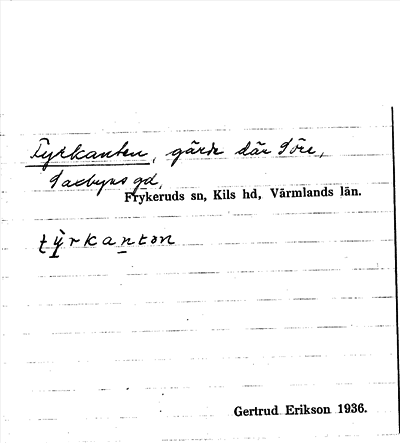 Fyrkanten, gärde där Töre,
Saxbyns gd,
Frykeruds sn, Kils hd, Värmlands län.
Gertrud Erikson 1936.